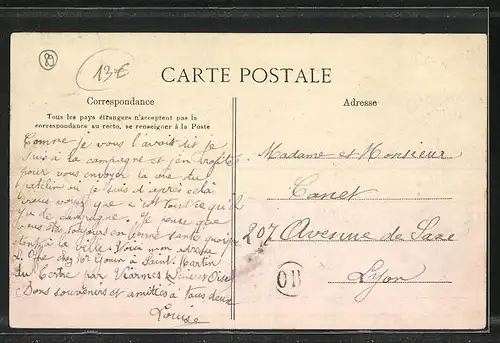 89
13€
CARTE POSTALE
Correspondance
Tous les pays étrangers n'acceptent pas la
correspondance au recto, se renseigner à la Poste
Comme je vous l'avait dit je
suis à la campagne et j'en profite
pour vous envoyer la vue du
patelin où je suis d'après cela
vous voyez que c'est tout ce qu'il
y a de campagne. Je pense que
vous êtes toujours en bonne santé quoique
étant à la ville. Voici mon adresse
chez Mr Gouin à Saint Martin
du Tertre par Viarmes Seine et Oise
Bons souvenirs et amitiés à tous deux
Louise
Adresse
Madame et Monsieur
Canet
207 Avenue de Saxe
Lyon
OR